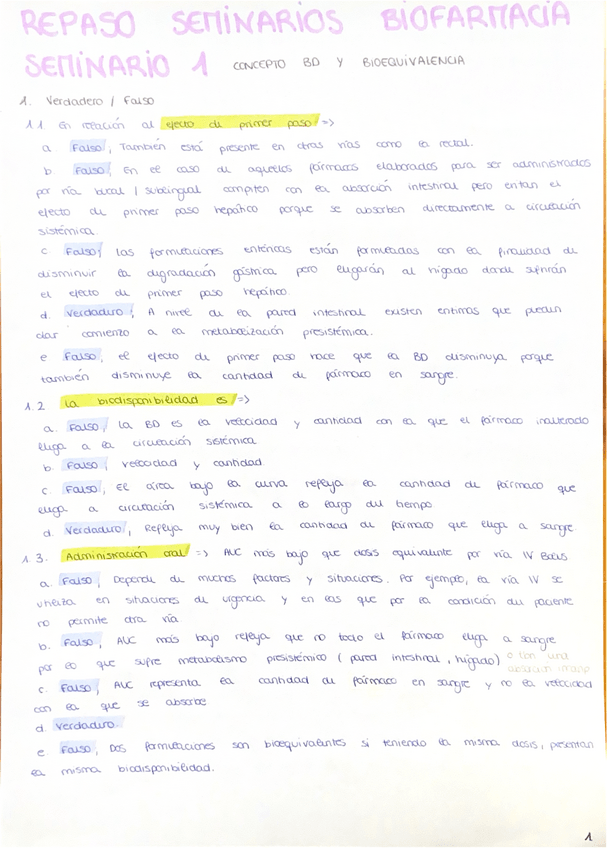 REPASO SEMINARIOS BIOFARMACIA
SEMINARIO 1 CONCEPTO BD Y BIOEQUIVALENCIA
1. Verdadero / Falso
1.1. En relación al efecto de primer paso =>
a. Falso, También está presente en otras vías como la rectal.
b Falso, En el caso de aquellos fármacos elaborados para ser administrados
por vía bucal / sublingual compiten con la absorción intestinal pero evitan el
efecto de primer paso hepático porque se absorben directamente a circulación
sistémica.
c Falso, las formulaciones entéricas están formuladas con la finalidad de
disminuir la degradación gástrica pero llegarán al hígado donde sufrirán
el efecto de primer paso hepático.
d. Verdadero, A nivel de la pared intestinal existen enzimas que pueden
dar comienzo a la metabolización presistémica.
e Falso, el efecto de primer paso hace que la BD disminuya porque
también disminuye la cantidad de fármaco en sangre.
1.2 La biodisponibilidad es =>
a. Falso, la BD es la velocidad y cantidad con la que el fármaco inalterado
llega a la circulación sistémica
b. Falso, velocidad y cantidad
c. Falso, El área bajo la curva refleja la cantidad de fármaco que
llega a circulación sistémica a lo largo del tiempo
d. Verdadero, Refleja muy bien la cantidad de fármaco que llega a sangre.
1.3. Administración oral => AUC más bajo que dosis equivalente por vía IV Bolus
a. Falso, Depende de muchos factores y situaciones. Por ejemplo, la vía IV se
utiliza en situaciones de urgencia y en las que por la condición del paciente
no permite otra vía
b. Falso, AUC más bajo refleja que no todo el fármaco llega a sangre
por lo que sufre metabolismo presistémico (pared intestinal, hígado) o tien una
absorción
c. Falso, AUC representa la cantidad de fármaco en sangre y no la velocidad
con la que se absorbe
d. Verdadero.
e Falso, Dos formulaciones son bioequivalentes si teniendo la misma dosis, presentan
la misma biodisponibilidad.
1